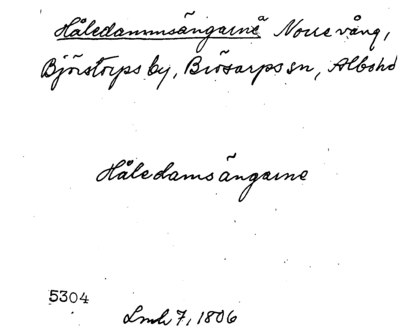 Håledammsängarne å Norrevång,
Björstorps by, Brösarps sn, Albo hd
Håledamsängarne
5304
Lmh 7, 1806